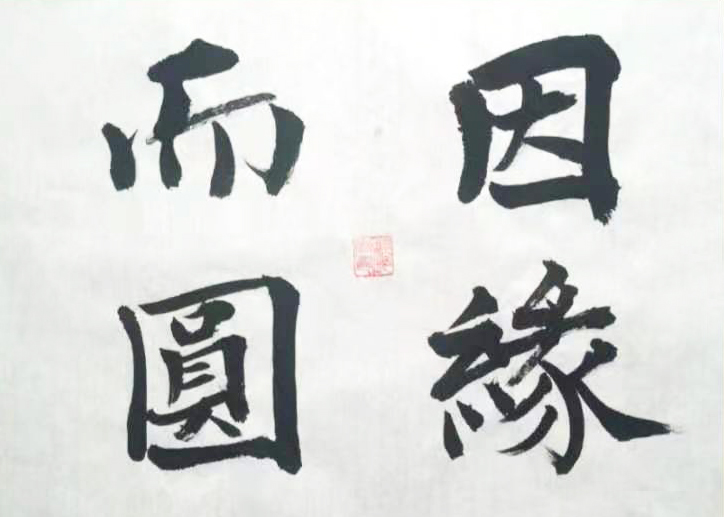 因緣
而圓